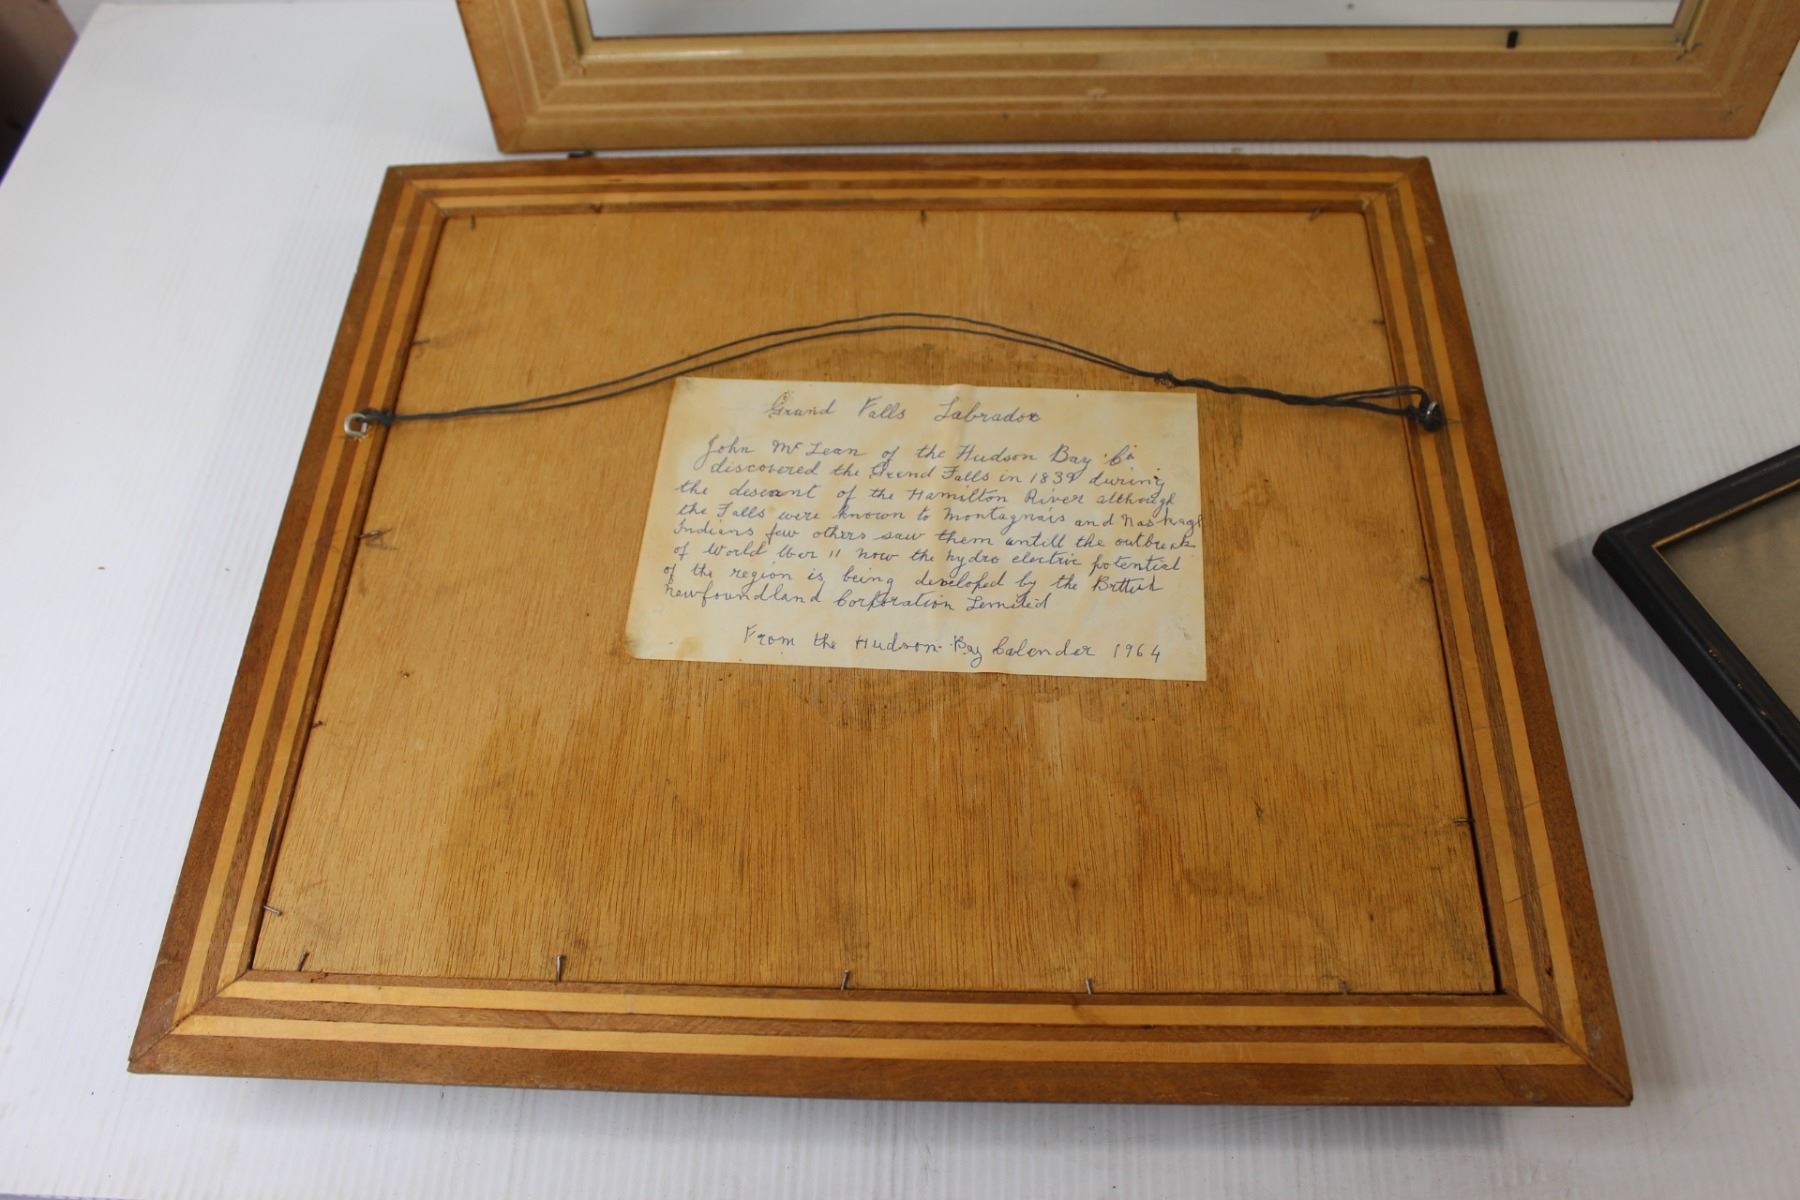 Grand Falls Labrador
John Mc Lean of the Hudson Bay Co
discovered the Grend Falls in 1839 during
the descent of the Hamilton River although
the Falls were known to Montagnais and Naskagi
Indians few others saw them untill the outbreak
of World War 11 now the hydro electric potential
of the region is being developed by the British
Newfoundland Corporation Limited
From the Hudson Bay Calender 1964